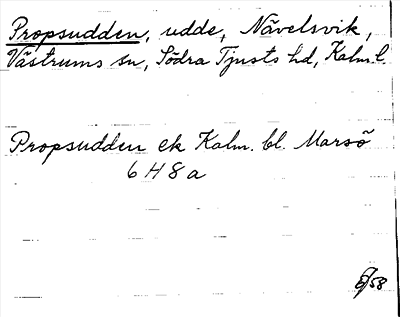 Propsudden, udde, Nävelsvik,
Västrums sn, Södra Tjusts hd, Kalm. l.
Propsudden ek Kalm. bl. Marsö
6 H 8 a
6/58